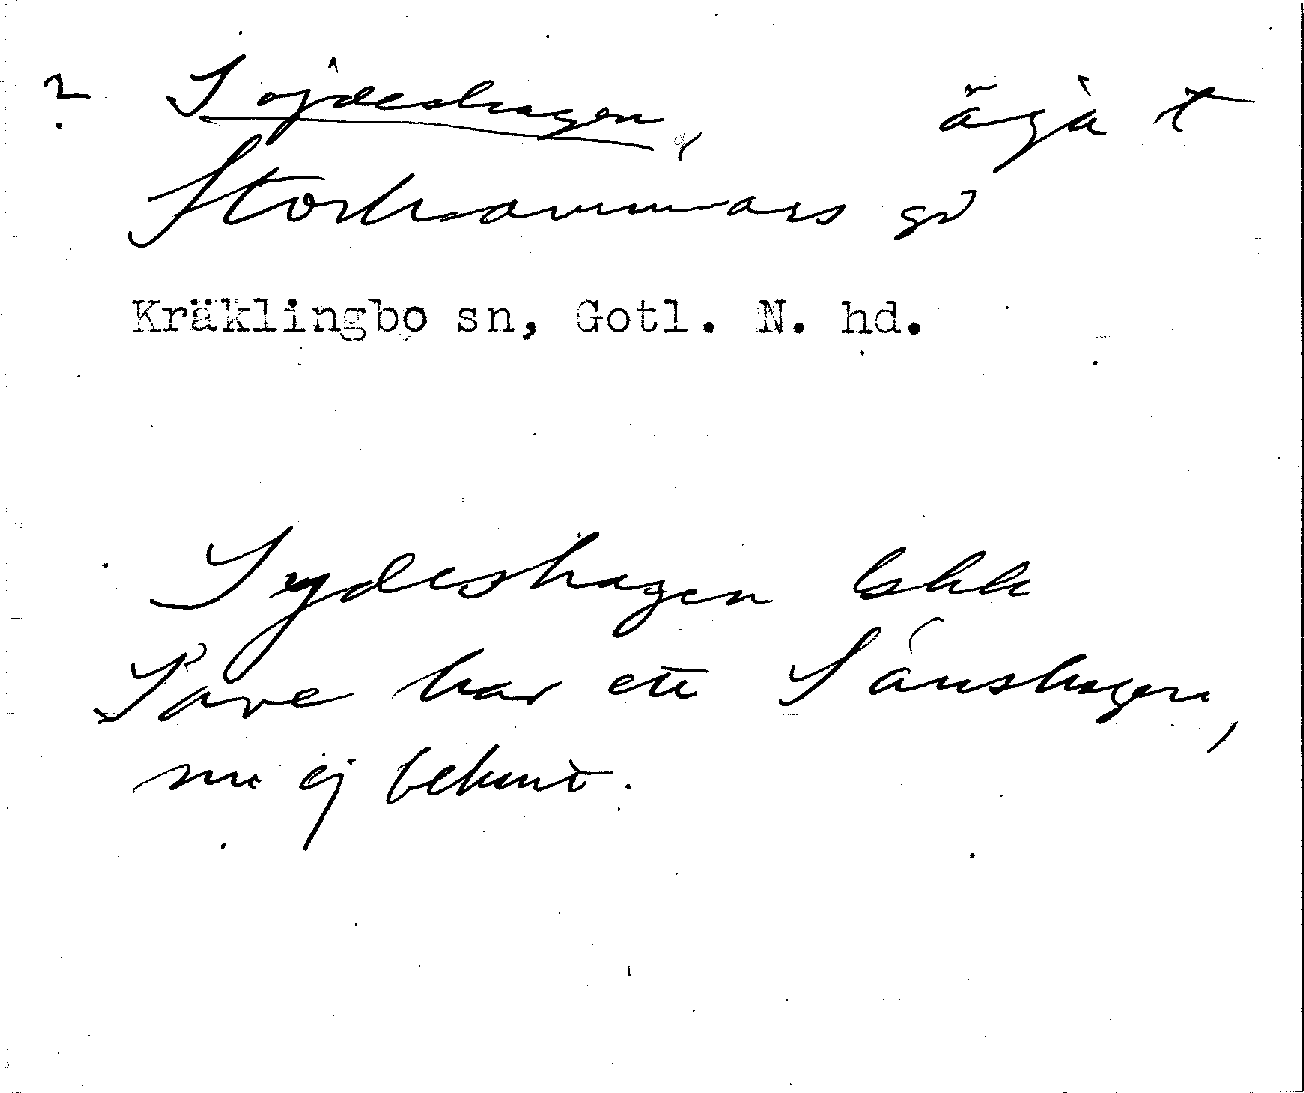 ? Sojdeshagen, äga t
Storhammars gd
Kräklingbo sn, Gotl. N. hd.
Sydeshagen lskk
Save har ett Sånshagen,
nu ej bekant.